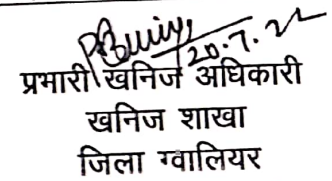 20.7.22
प्रभारी खनिज अधिकारी
खनिज शाखा
जिला ग्वालियर